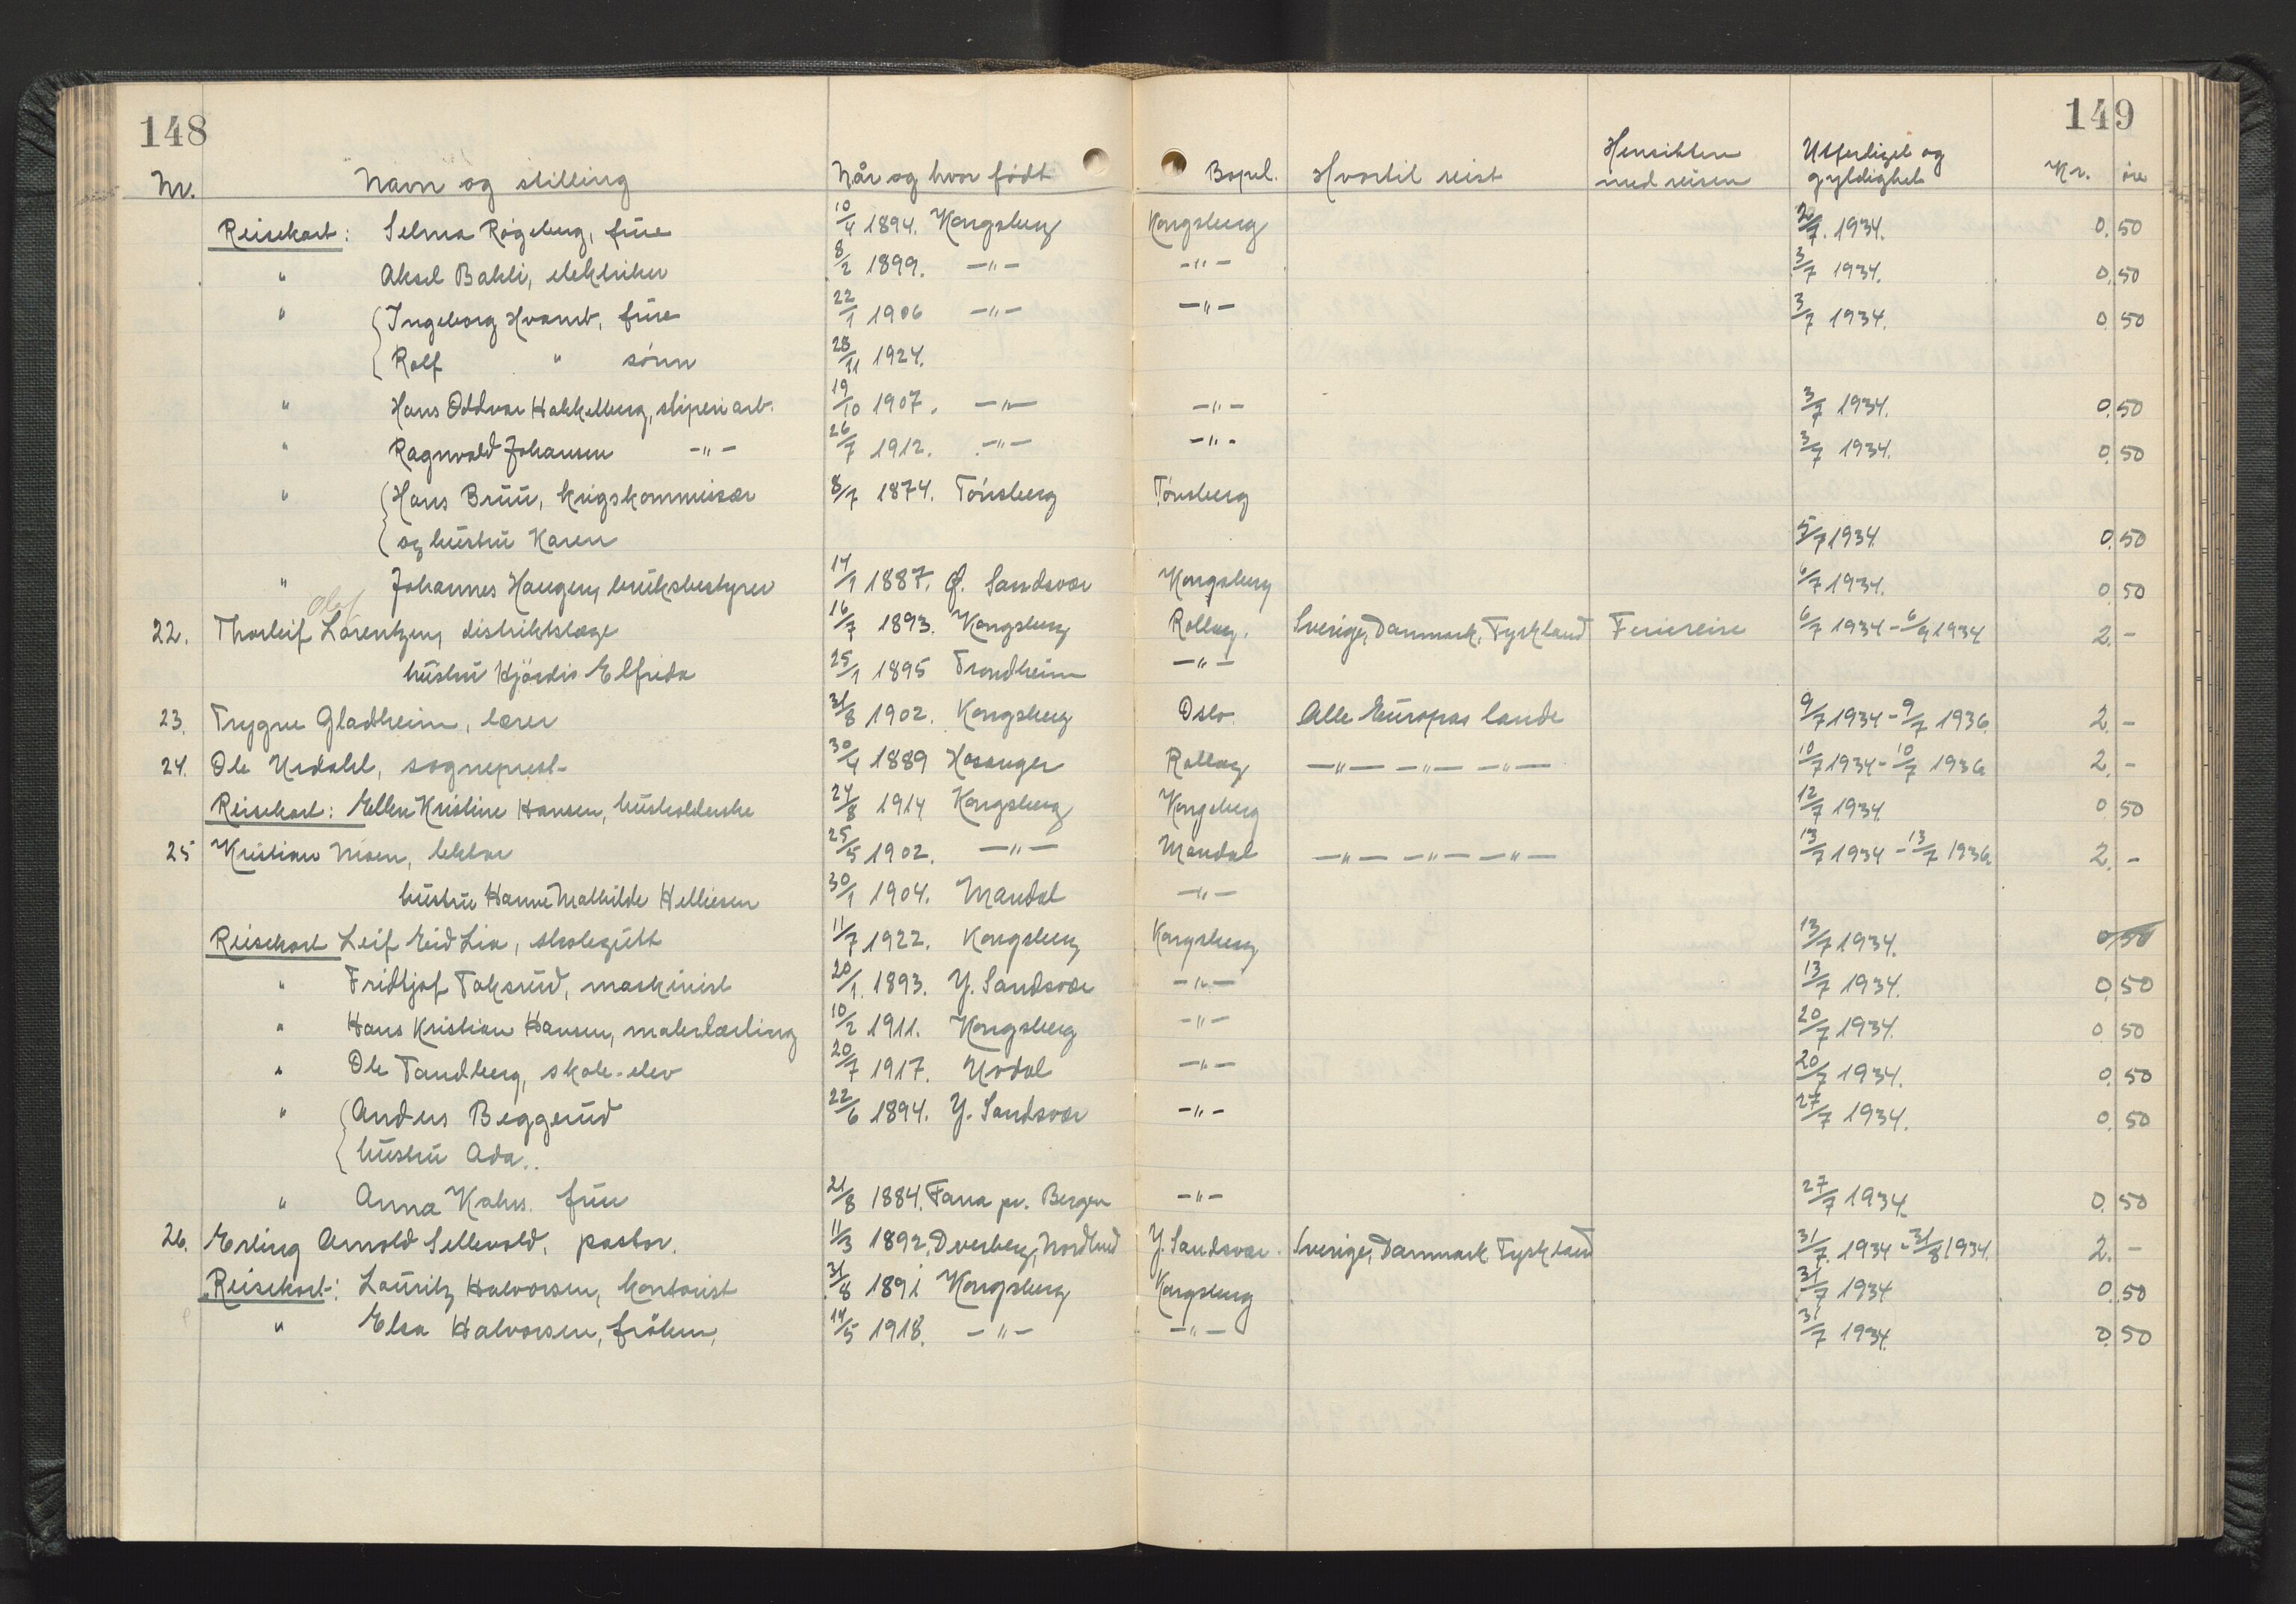 148
149
Nr. Navn og stilling Når og hvor født Bopel. Hvortil reist Hensikten med reisen Utferdiget og gyldighet Kr. øre
Reisekort: Selma Røgeberg, frue 10/4 1894. Kongsberg Kongsberg /7. 1934. 0.50
" Aksel Bakli, elektriker 8/2 1899. -"- -"- 3/7 1934. 0.50
" Ingeborg Hvamb, frue 22/1 1906 -"- -"- 3/7 1934. 0.50
Rolf " sønn 28/11 1924.
" Hans Oddvar Hakkelberg, sliperiarb. 19/10 1907. -"- -"- 3/7 1934. 0.50
" Ragnvald Johansen -"- 26/7 1912. -"- -"- 3/7 1934. 0.50
" Hans Bruu, krigskommissær 8/7 1874. Tønsberg Tønsberg
og hustru Karen 5/7 1934. 0.50
" Johannes Haugen, bruksbestyrer 14/1 1887. Ø. Sandsvær Kongsberg 6/7 1934. 0.50
Olaf
22. Thorleif Lorentzen, distriktslæge 16/7 1893. Kongsberg Rollag. Sverige, Danmark, Tyskland Feriereise 6/7 1934 - 6/9 1934 2.-
hustru Hjørdis Elfrida 25/1 1895 Trondheim -"-
23. Trygve Gladheim, lærer 31/8 1902. Kongsberg Oslo. Alle Europas lande 9/7 1934 - 9/7 1936. 2.-
24. Ole Urdahl, sogneprest 30/4 1889 Hosanger Rollag -"- -"- -"- 10/7 1934 - 10/7 1936 2.-
Reisekort: Ellen Kristine Hansen, husholderske 24/8 1914 Kongsberg Kongsberg 12/7 1934 0.50
25 Kristian Moen, lektor 25/5 1902. -"- Mandal -"- -"- -"- 13/7 1934 - 13/7 1936 2.-
hustru Hanne Mathilde Helliesen 30/1 1904. Mandal -"-
Reisekort Leif Eid Lia, skolegutt 11/7 1922. Kongsberg Kongsberg 13/7 1934. 0.50
" Fridtjof Taksrud, maskinist 20/1. 1893. Y. Sandsvær -"- 13/7 1934. 0.50
" Hans Kristian Hansen, malerlærling 10/2 1911. Kongsberg -"- 20/7 1934. 0.50
" Ole Tandberg, skole-elev 20/7 1917. Uvdal -"- 20/7 1934. 0.50
" Anders Beggerud 22/6 1894. Y. Sandsvær -"- 27/7 1934. 0.50
hustru Ada.
" Anna Kahrs. frue 21/8 1884. Fana pr. Bergen -"- 27/7 1934 0.50
26. Erling Arnold Sellevold, pastor. 11/3 1892, Dverberg, Nordland Y. Sandsvær. Sverige, Danmark Tyskland 31/7. 1934 - 31/8 1934. 2.-
Reisekort: Lauritz Halvorsen, kontorist 31/8 1891 Kongsberg Kongsberg 31/7 1934 0.50
" Elsa Halvorsen, frøken, 14/5 1918. -"- -"- 31/7 1934. 0.50